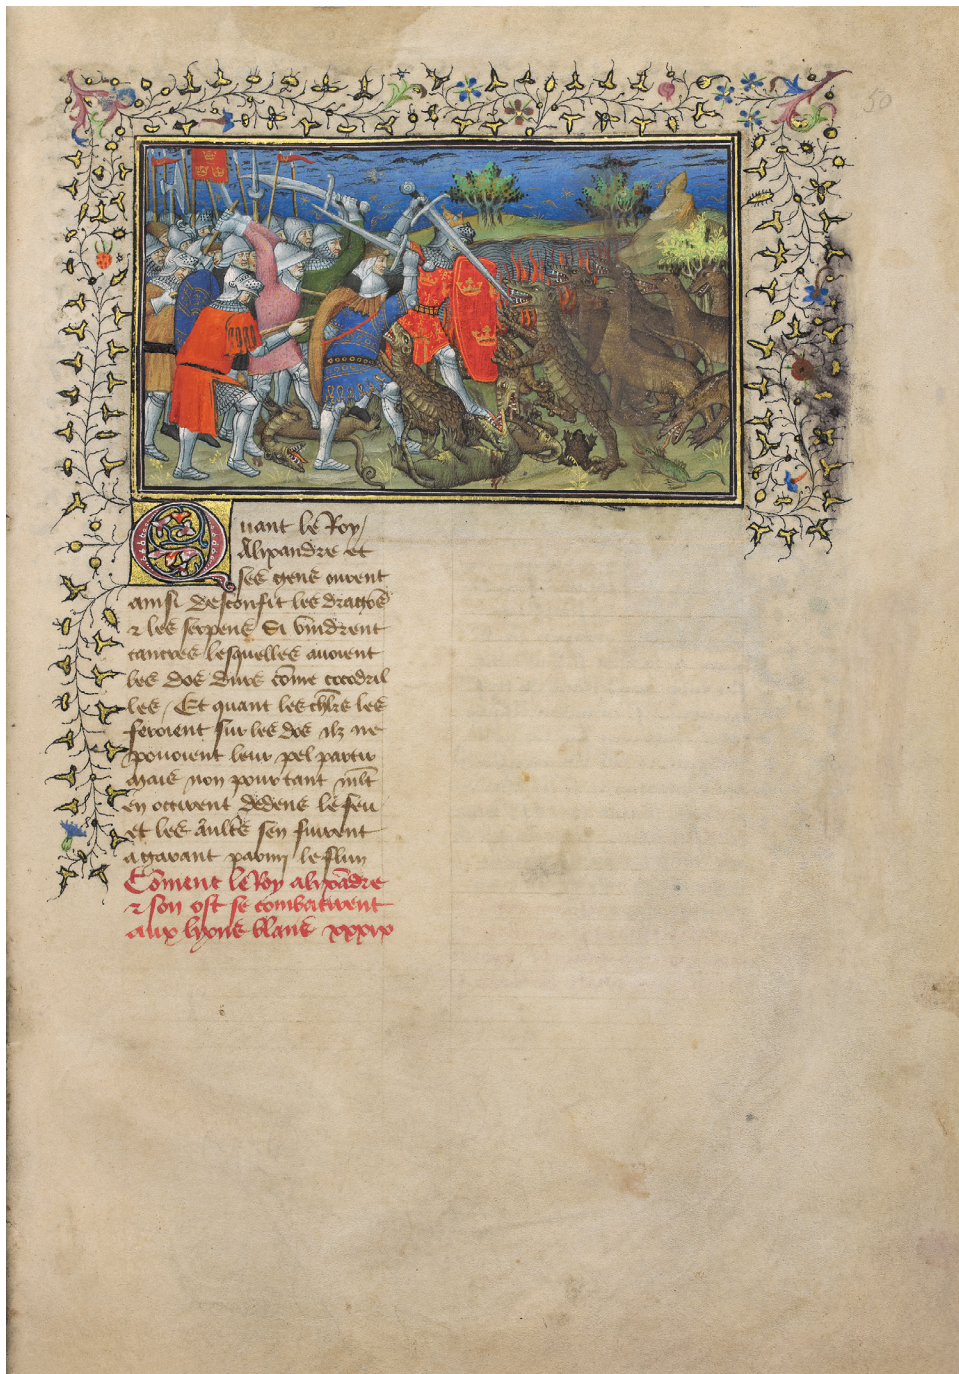 50
Quant le Roy
Alixandre et
ses gens eurent
ainsi desconfit les dragõs
⁊ les serpens Si vindrent
cancres lesquelles avoient
les dos durs cõme cocodril
les / Et quant les chl̃rs les
feroient sur les dos ilz ne
pouoient leur pel partir
mais non pour tant mlt̃
en occirent dedens le feu
et les aultr̃s sen fuirent
a garant parmy le flun
Cõment le Roy alixãdre
⁊ son ost se combatirent
aux lyons blans xxxix